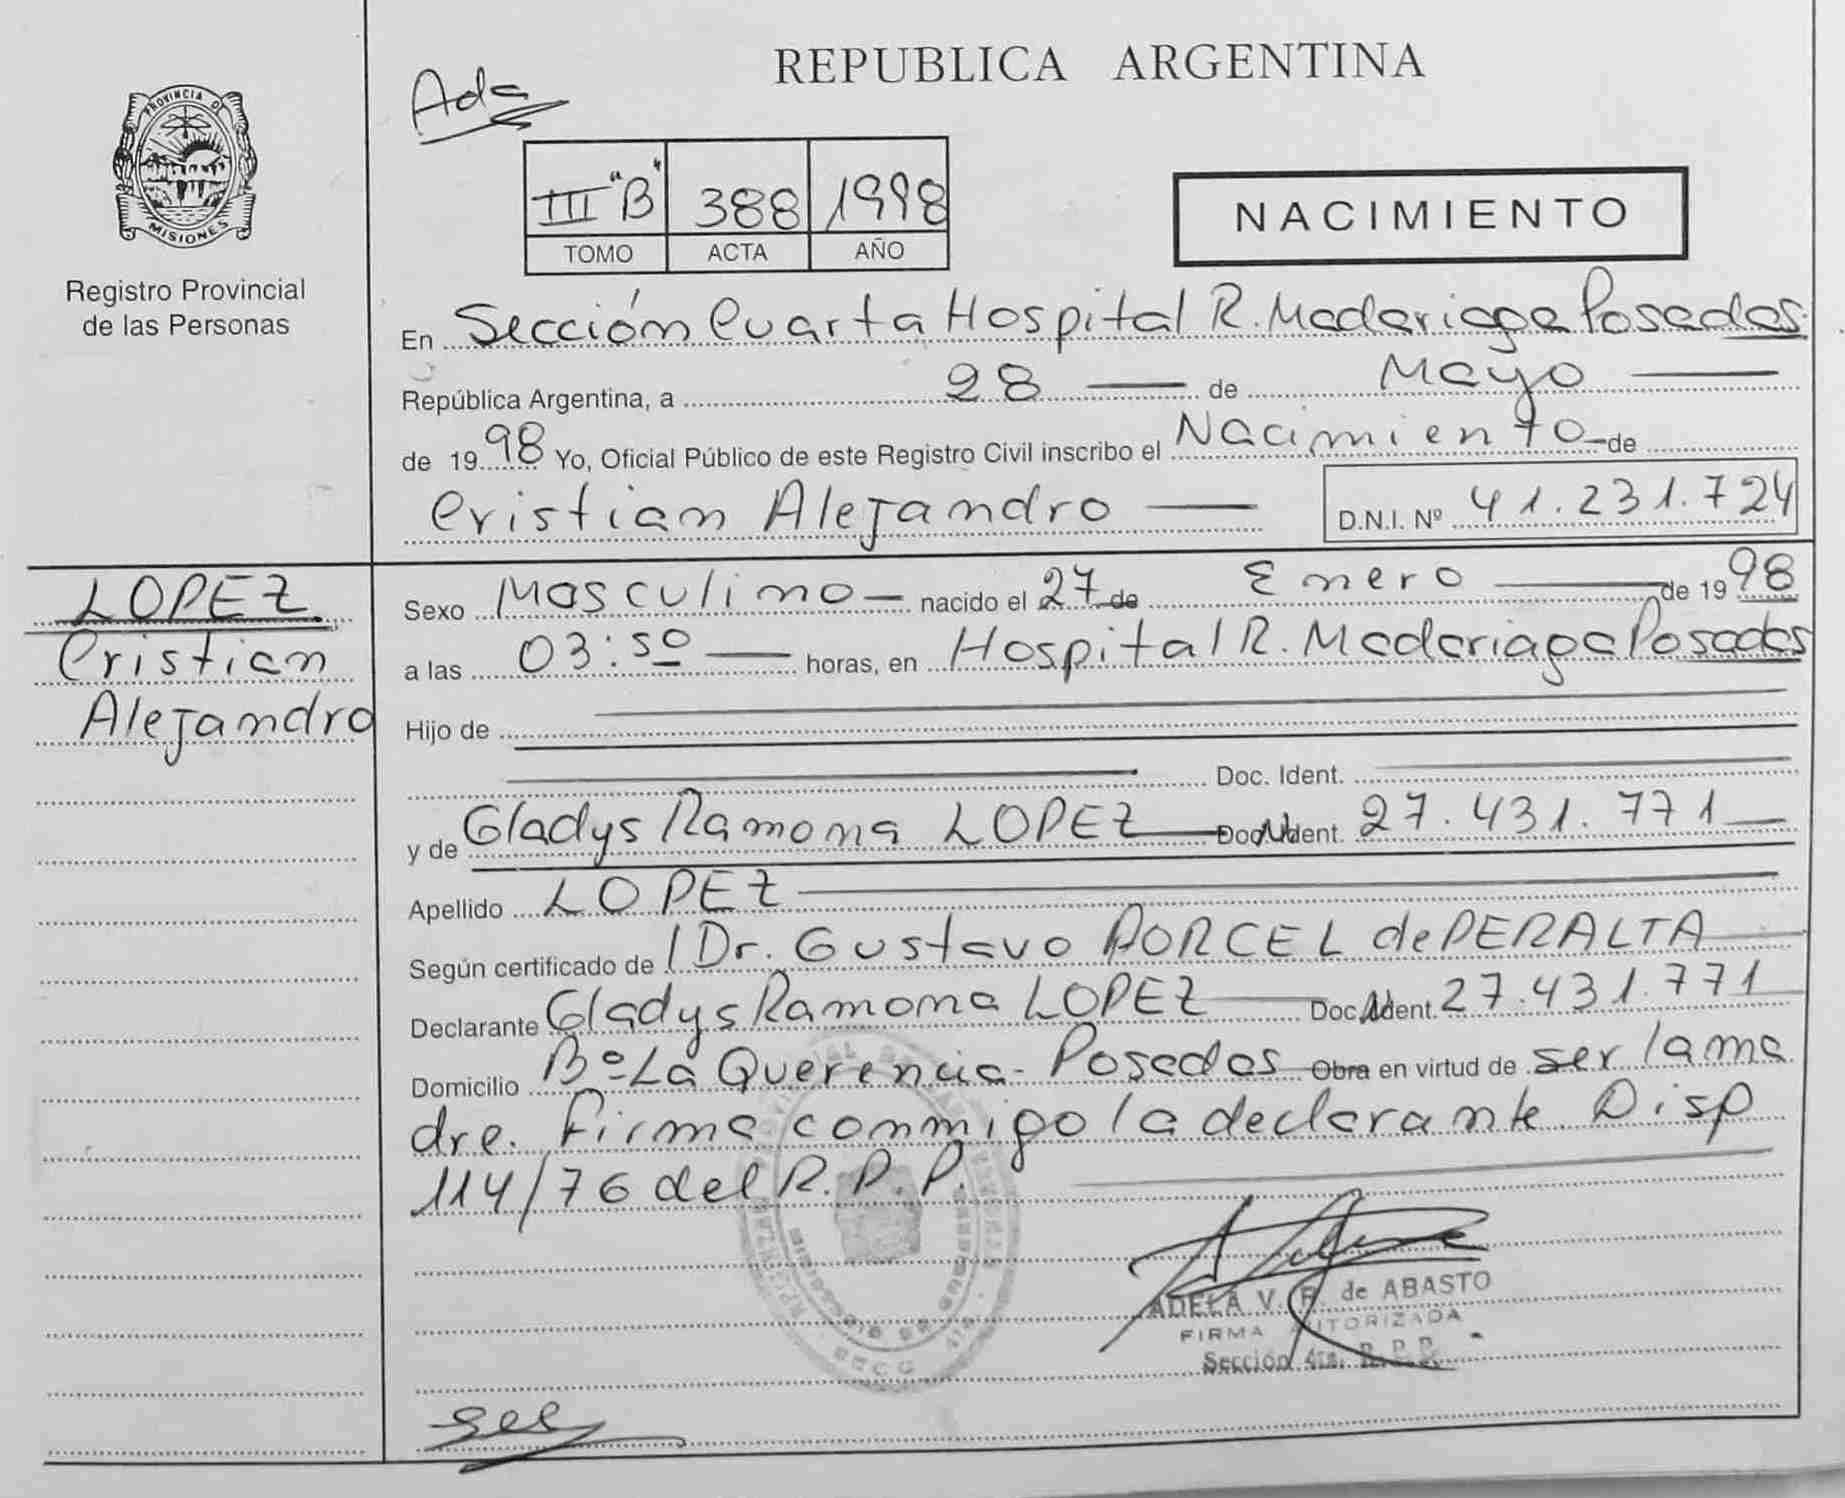 REPUBLICA ARGENTINA
Ada
PROVINCIA D
MISIONES
Registro Provincial
de las Personas
III "B" 388 1998
TOMO ACTA AÑO
NACIMIENTO
En Sección Cuarta Hospital R. Madariaga Posadas
República Argentina, a 28 de Mayo
de 1998 Yo, Oficial Público de este Registro Civil inscribo el Nacimiento de
Cristian Alejandro D.N.I. Nº 41.231.724
LOPEZ
Cristian
Alejandro
Sexo Masculino nacido el 27 de Enero de 1998
a las 03:50 horas, en Hospital R. Madariaga Posadas
Hijo de
Doc. Ident.
y de Gladys Ramona LOPEZ Doc. Ident. 27.431.771
Apellido LOPEZ
Según certificado de Dr. Gustavo PORCEL de PERALTA
Declarante Gladys Ramona LOPEZ Doc. Ident. 27.431.771
Domicilio Bº La Querencia - Posadas Obra en virtud de ser la ma
dre. Firma conmigo la declarante. Disp
114/76 del R.P.P.
ADELA V. R. de ABASTO
FIRMA AUTORIZADA
Sección 4ta. R.P.P.